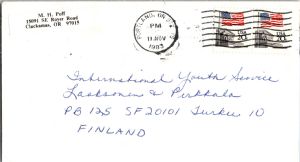 M. H. Poff
15091 SE Royer Road
Clackamas, OR 97015
PORTLAND, OR
PM
11 NOV
1983
USA 20c
USA 20c
International Youth Service
Laaksonen & Pirkkala
PB 125 SF 20101 Turku 10
FINLAND